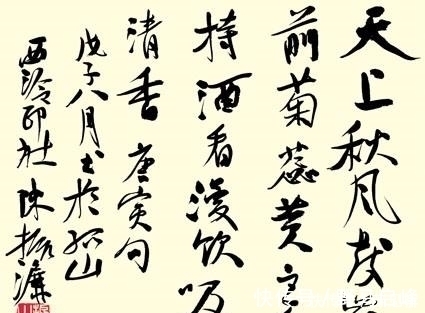 天上秋风发
前菊蕊黄主
持酒看漫饮吸
清香 唐寅句
戊子八月书於孤山
西泠印社陈振濂
快传号